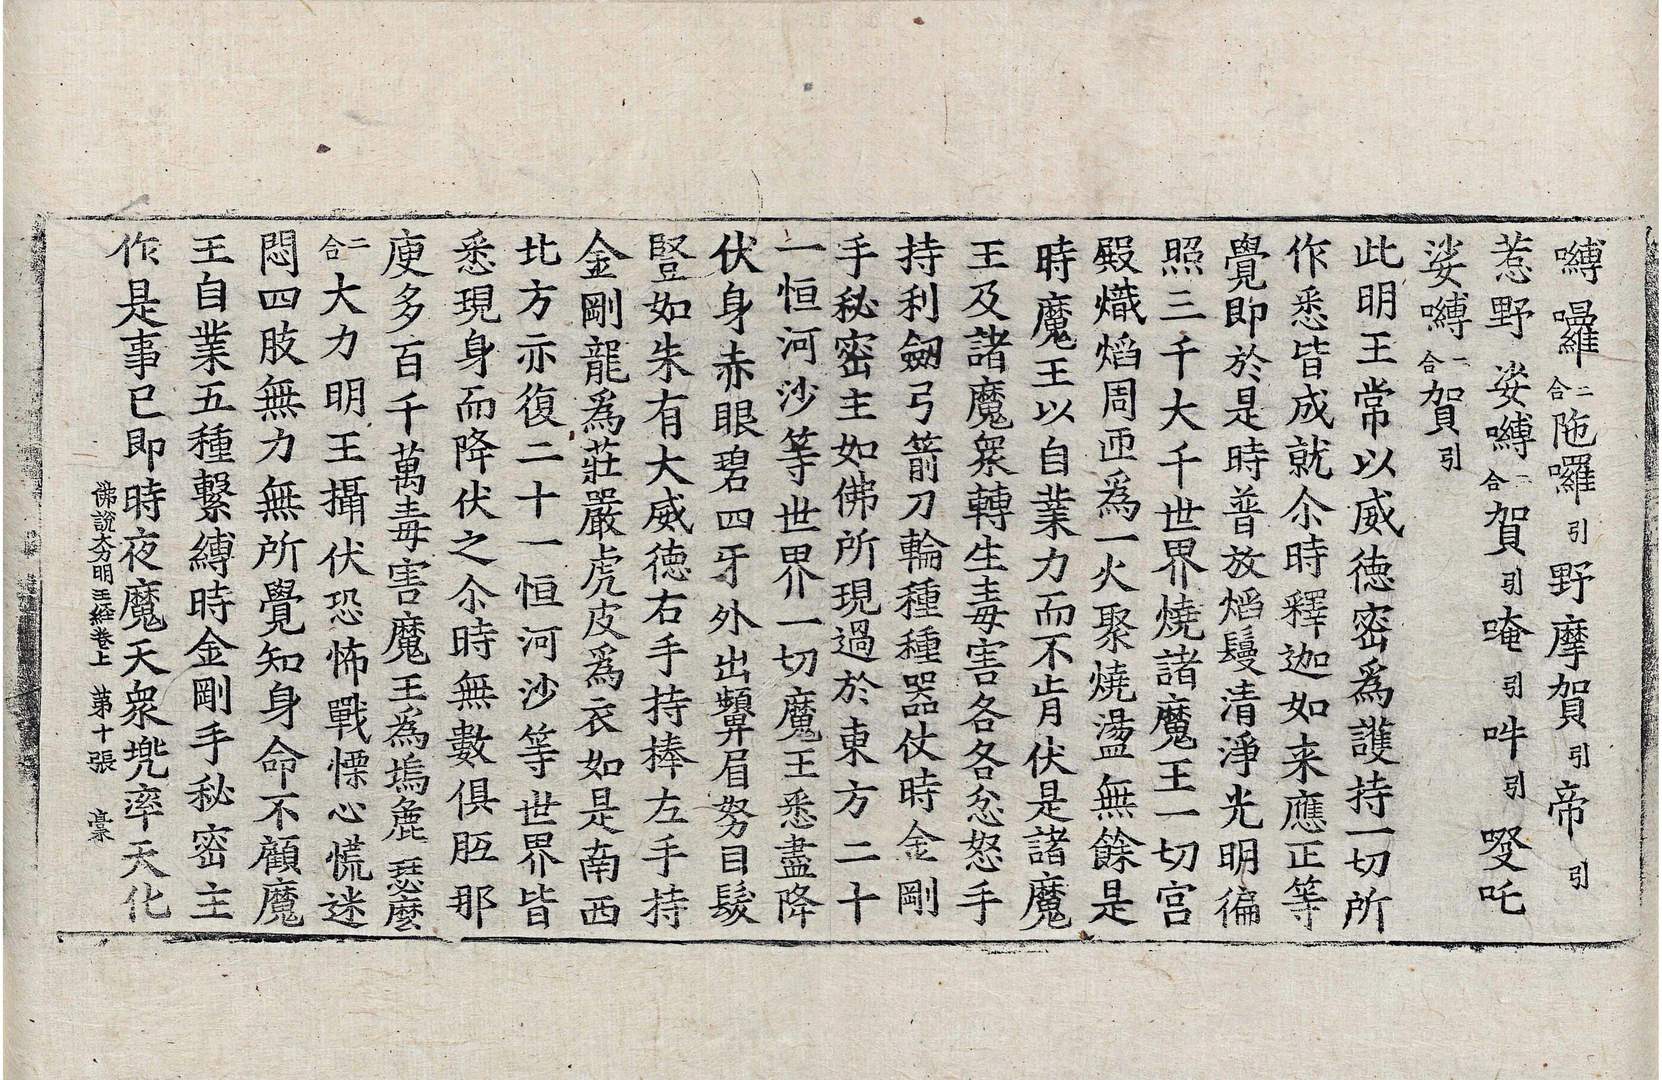 嚩囉二合陁囉引野摩賀引帝引
惹野娑嚩二合賀引唵引吽引癹吒
娑嚩二合賀引
此明王常以威德密爲護持一切所
作悉皆成就尒時釋迦如来應正等
覺即於是時普放熖鬘清淨光明徧
照三千大千世界燒諸魔王一切宮
殿熾熖周匝爲一火聚燒盪無餘是
時魔王以自業力而不肯伏是諸魔
王及諸魔衆轉生毒害各各忿怒手
持利劒弓箭刀輪種種器仗時金剛
手秘密主如佛所現過於東方二十
一恒河沙等世界一切魔王悉盡降
伏身赤眼碧四牙外出顰眉努目髮
豎如朱有大威德右手持捧左手持
金剛龍爲莊嚴虎皮爲衣如是南西
北方亦復二十一恒河沙等世界皆
悉現身而降伏之尒時無數俱胝那
庾多百千萬毒害魔王爲塢麁瑟麼
二合大力明王攝伏恐怖戰慄心慌迷
悶四肢無力無所覺知身命不顧魔
王自業五種繫縛時金剛手秘密主
作是事已即時夜魔天衆兠率天化
佛說大力明王經卷上 第十張 㝯